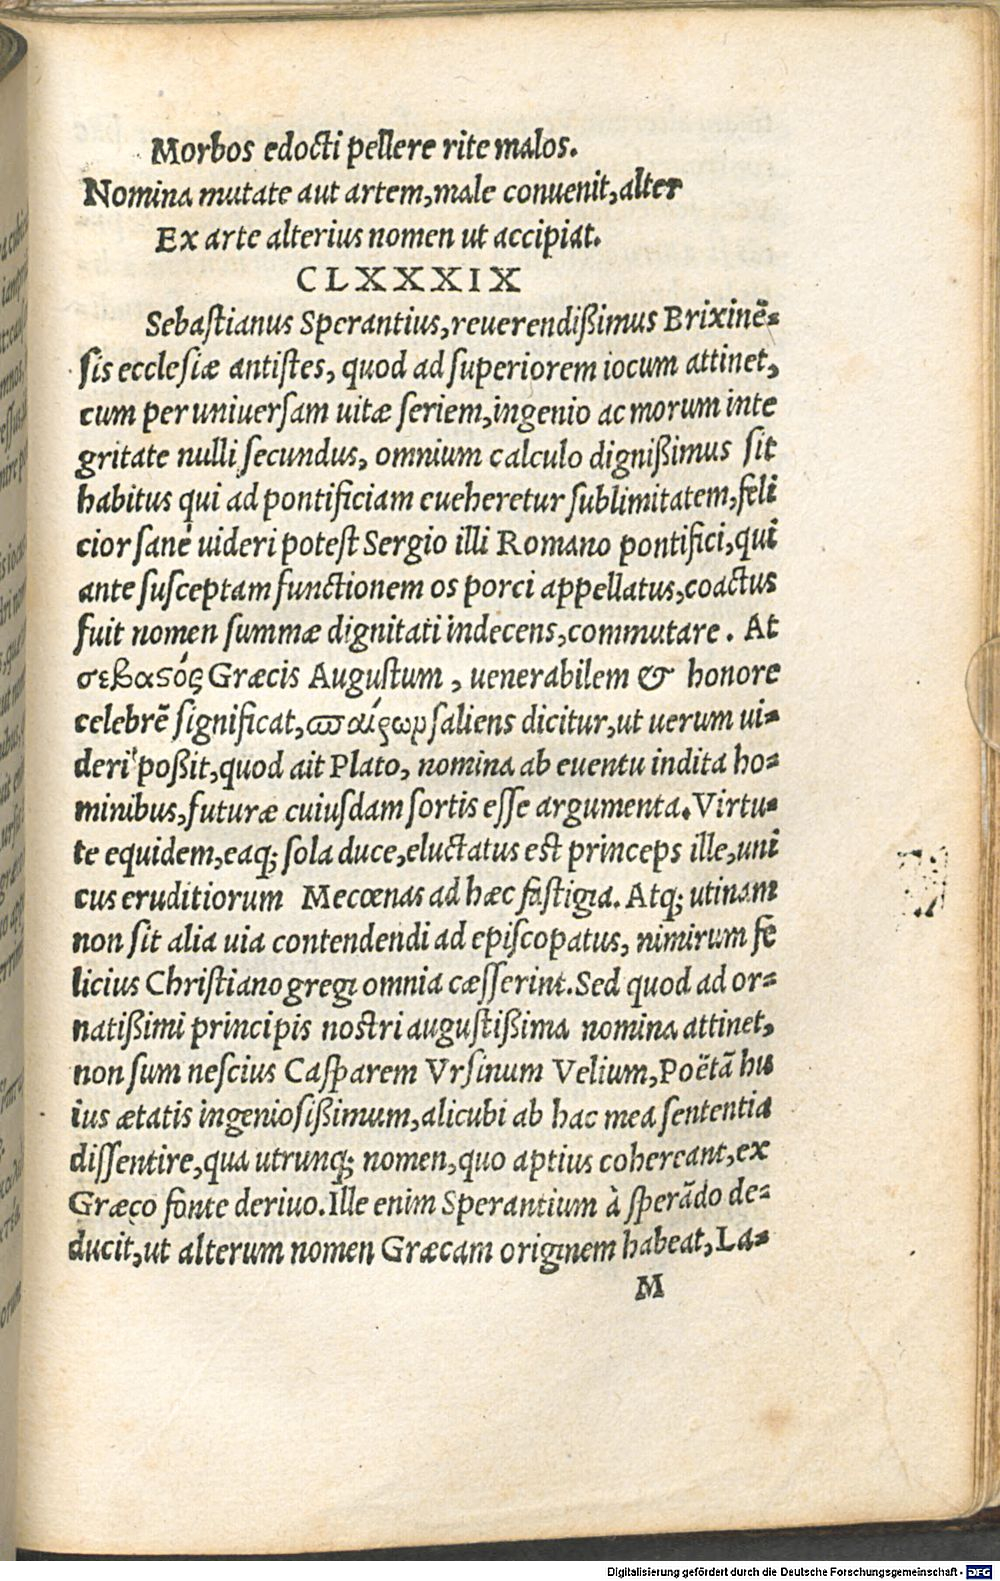 Morbos edocti pellere rite malos.
Nomina mutate aut artem, male convenit, alter
Ex arte alterius nomen ut accipiat.
CLXXXIX
Sebaſtianus Sperantius, reuerendiſſimus Brixinē-
ſis eccleſiæ antiſtes, quod ad ſuperiorem iocum attinet,
cum per univerſam uitæ ſeriem, ingenio ac morum inte
gritate nulli ſecundus, omnium calculo digniſſimus ſit
habitus qui ad pontificiam eueheretur ſublimitatem, feli
cior ſanè uideri poteſt Sergio illi Romano pontifici, qui
ante ſuſceptam functionem os porci appellatus, coactus
fuit nomen ſummæ dignitati indecens, commutare. At
σεβαςός Græcis Auguſtum, uenerabilem & honore
celebrē ſignificat, ϖαίρωρ ſaliens dicitur, ut uerum ui-
deri poßit, quod ait Plato, nomina ab euentu indita ho-
minibus, futuræ cuiuſdam ſortis eſſe argumenta. Virtu-
te equidem, eaq; ſola duce, eluctatus est princeps ille, uni
cus eruditiorum Mecœnas ad hæc faſtigia. Atq; utinam
non ſit alia uia contendendi ad epiſcopatus, nimirum fē
licius Chriſtiano gregi omnia cæſſerint. Sed quod ad or-
natißimi principis nostri auguſtißima nomina attinet,
non ſum neſcius Caſparem Vrſinum Velium, Poëtā hu
ius ætatis ingenioſißimum, alicubi ab hac mea ſententia
diſſentire, qua utrunq; nomen, quo aptius cohereant, ex
Græco fonte deriuo. Ille enim Sperantium à ſperādo de-
ducit, ut alterum nomen Græcam originem habeat, La-
M
Digitalisierung gefördert durch die Deutsche Forschungsgemeinschaft - DFG